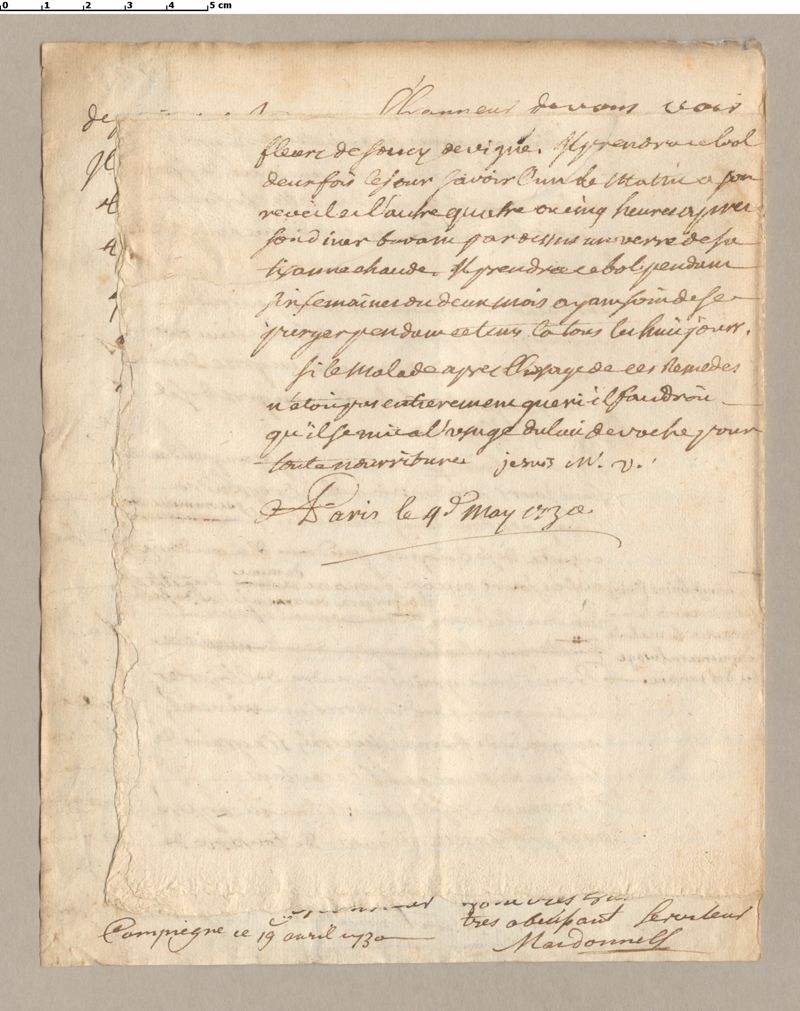 0 1 2 3 4 5 cm
l'hanneur de vous voir
fleurs de soucy de vigne. Il prendra ce bol
deux fois le jour savoir l'un le Matin a son
reveil et l'autre quatre ou cinq heures apres
son diner buvant par dessus un verre de sa
tisanne chaude. Il prendra ce bol pendant
six semaines ou deux mois ayant soin de se
purger pendant ce tems la tous les huit jours.
Si le Malade apres l'usage de ces Remedes
n'etoit pas entierement gueri il faudroit
qu'il se mit a l'usage du lait de vache pour
toute nourriture je suis M. v.
A Paris le 9e May 1730
tres obeissant serviteur
Compiegne ce 19 avril 1730
Macdonnell